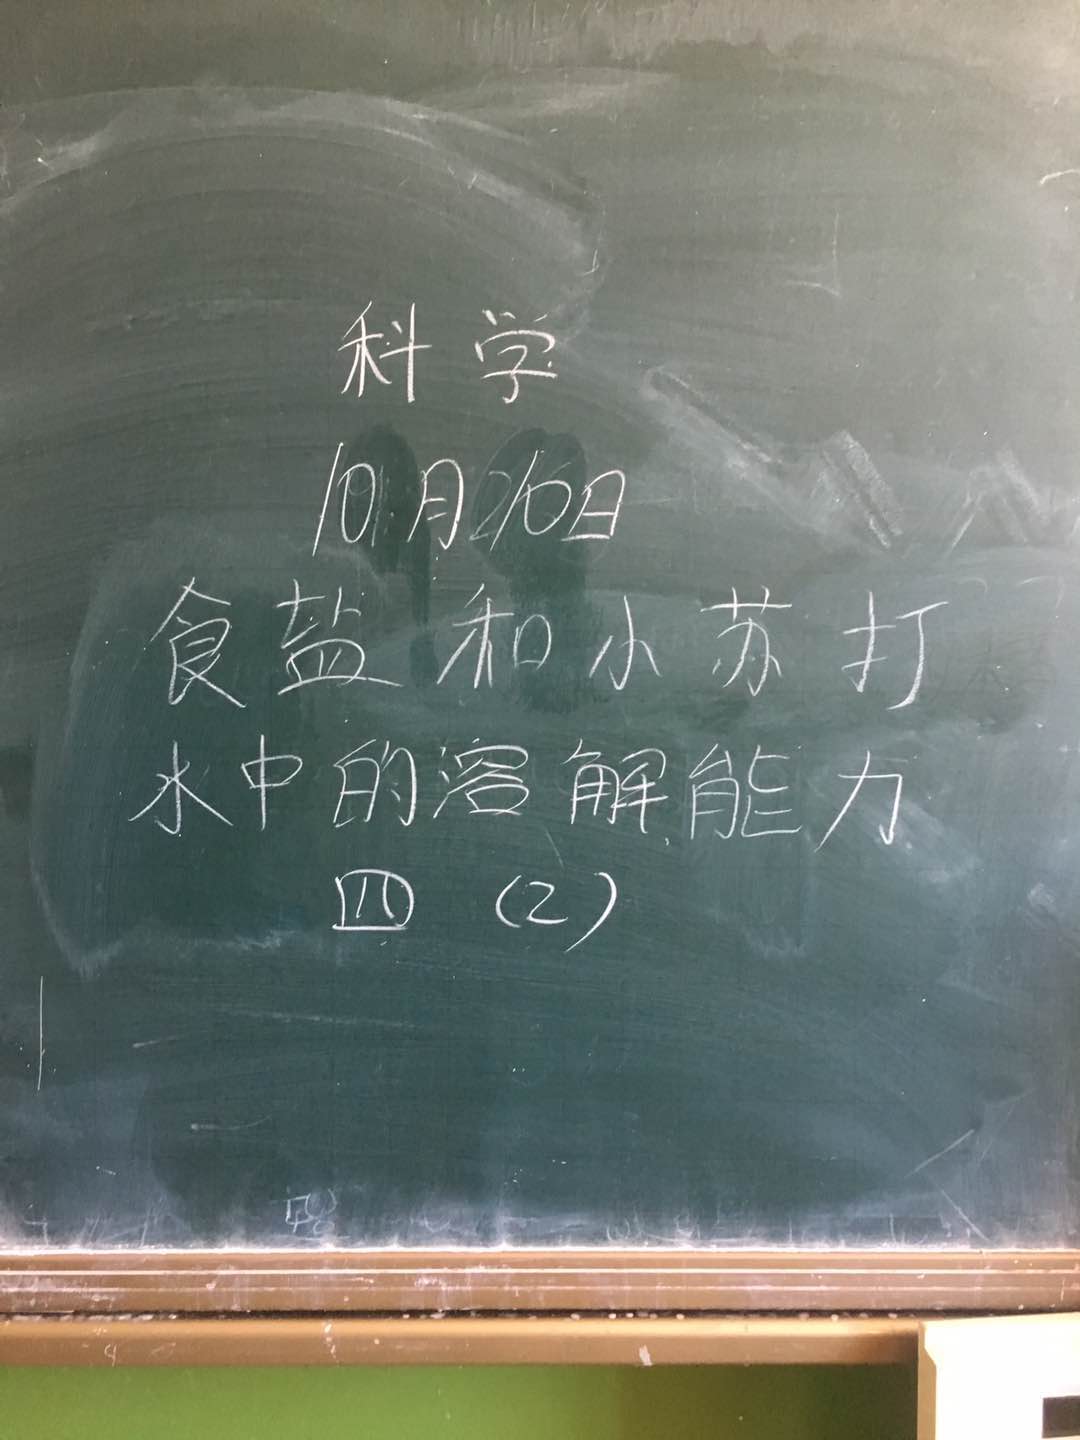 科学
10月26日
食盐和小苏打
水中的溶解能力
四 (2)